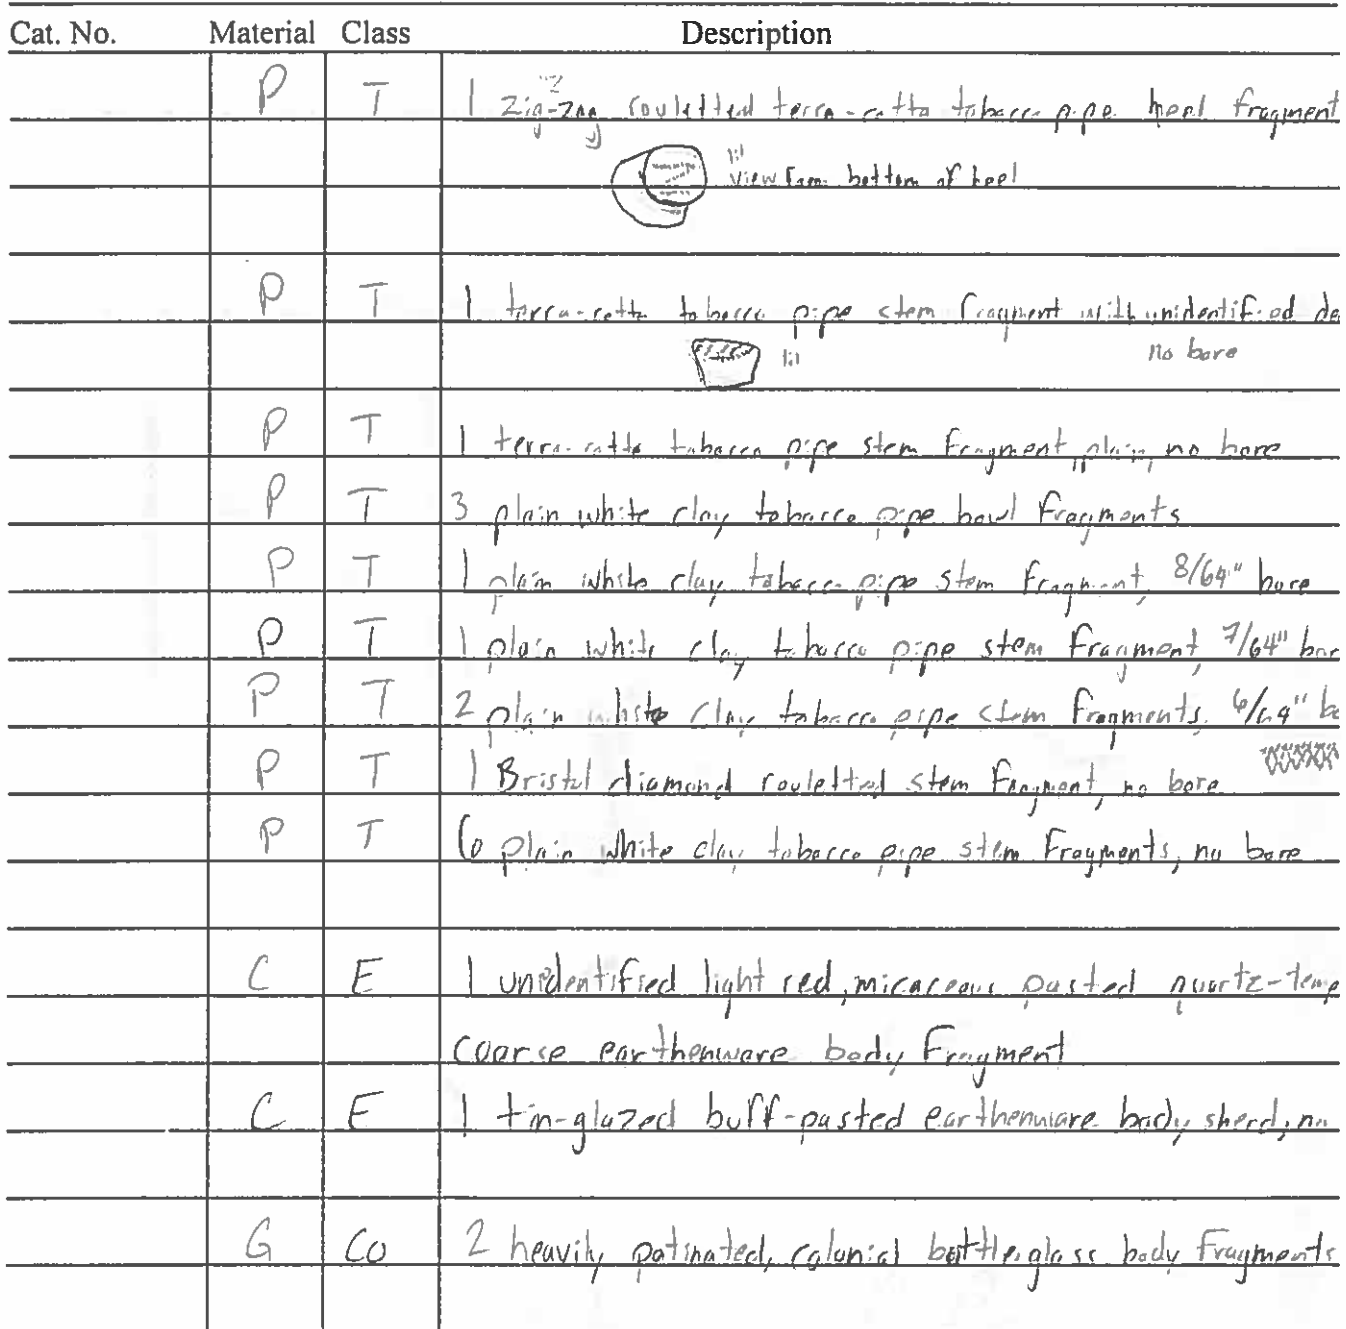 Cat. No. Material Class Description
P T 1 zig-zag rouletted terra-cotta tobacco pipe heel fragment
1:1 view from bottom of heel
P T 1 terra-cotta tobacco pipe stem fragment with unidentified de
1:1 no bore
P T 1 terra-cotta tobacco pipe stem fragment, plain, no bore
P T 3 plain white clay tobacco pipe bowl fragments
P T 1 plain white clay tobacco pipe stem fragment, 8/64" bore
P T 1 plain white clay tobacco pipe stem fragment, 7/64" bor
P T 2 plain white clay tobacco pipe stem fragments, 6/64" bo
P T 1 Bristol diamond rouletted stem fragment, no bore
P T 6 plain white clay tobacco pipe stem fragments, no bore
C E 1 unidentified light red, micaceous pasted quartz-temp
coarse earthenware body fragment
C E 1 tin-glazed buff-pasted earthenware body sherd, no
G Co 2 heavily patinated, colonial bottle glass body fragments